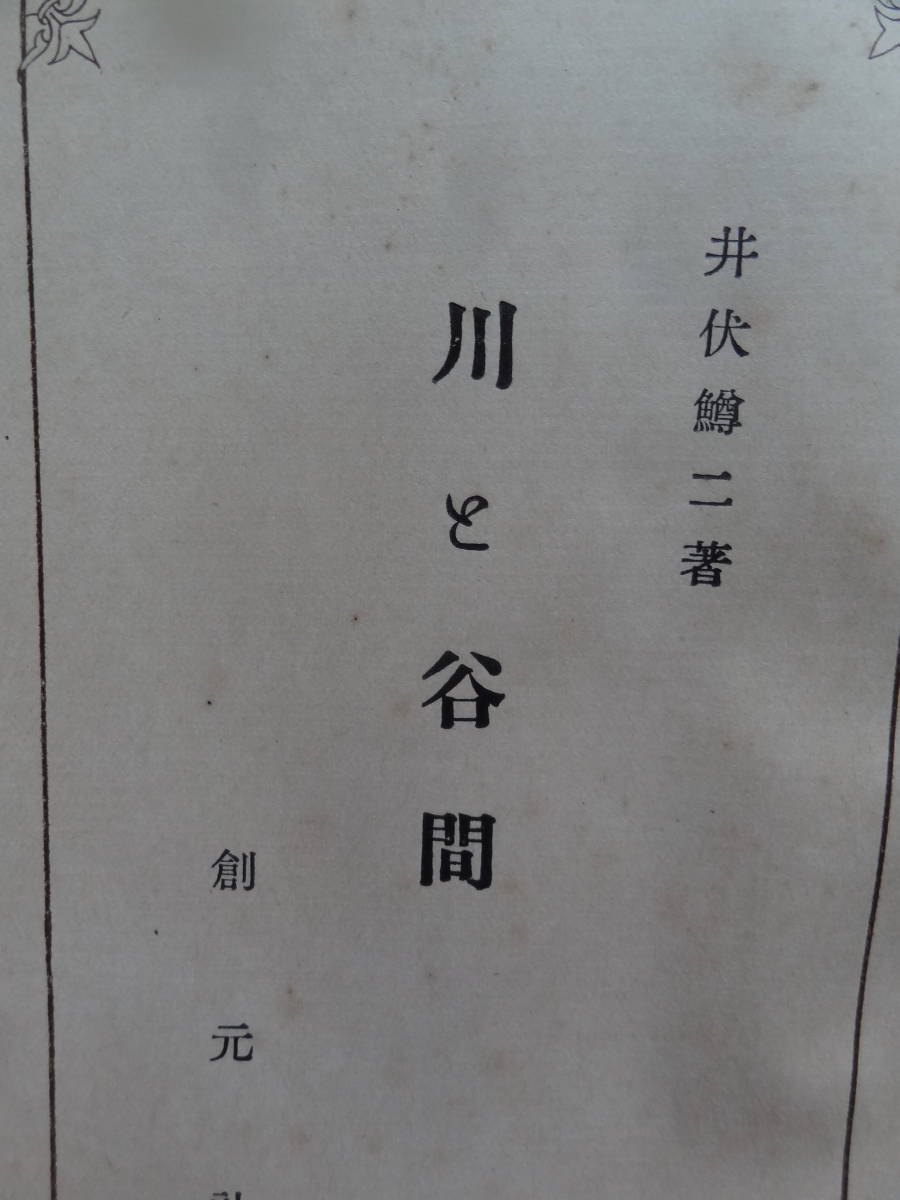 井伏鱒二著
川と谷間
創元社